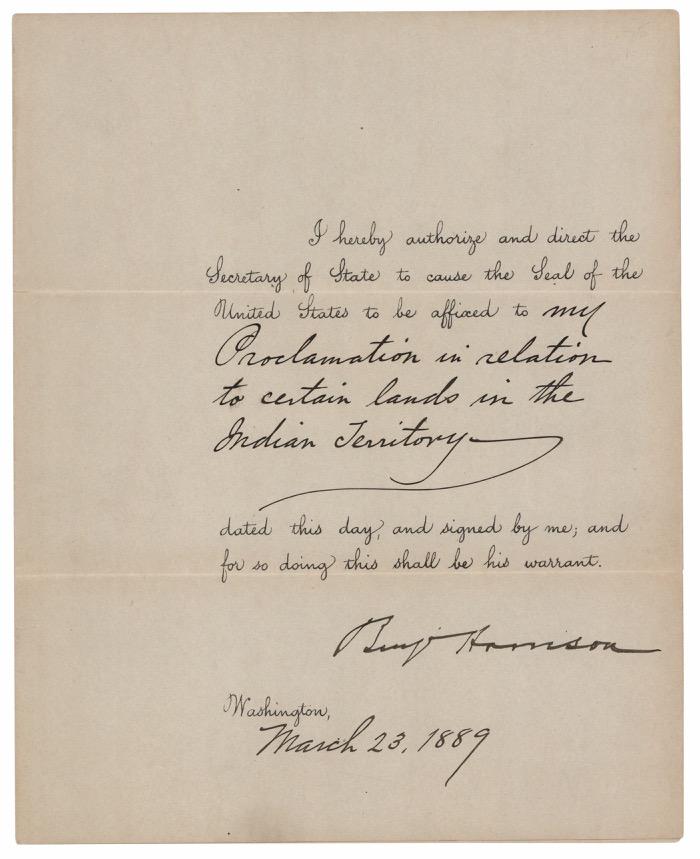 I hereby authorize and direct the
Secretary of State to cause the Seal of the
United States to be affixed to my
Proclamation in relation
to certain lands in the
Indian Territory
dated this day, and signed by me; and
for so doing this shall be his warrant.
Benj Harrison
Washington,
March 23, 1889